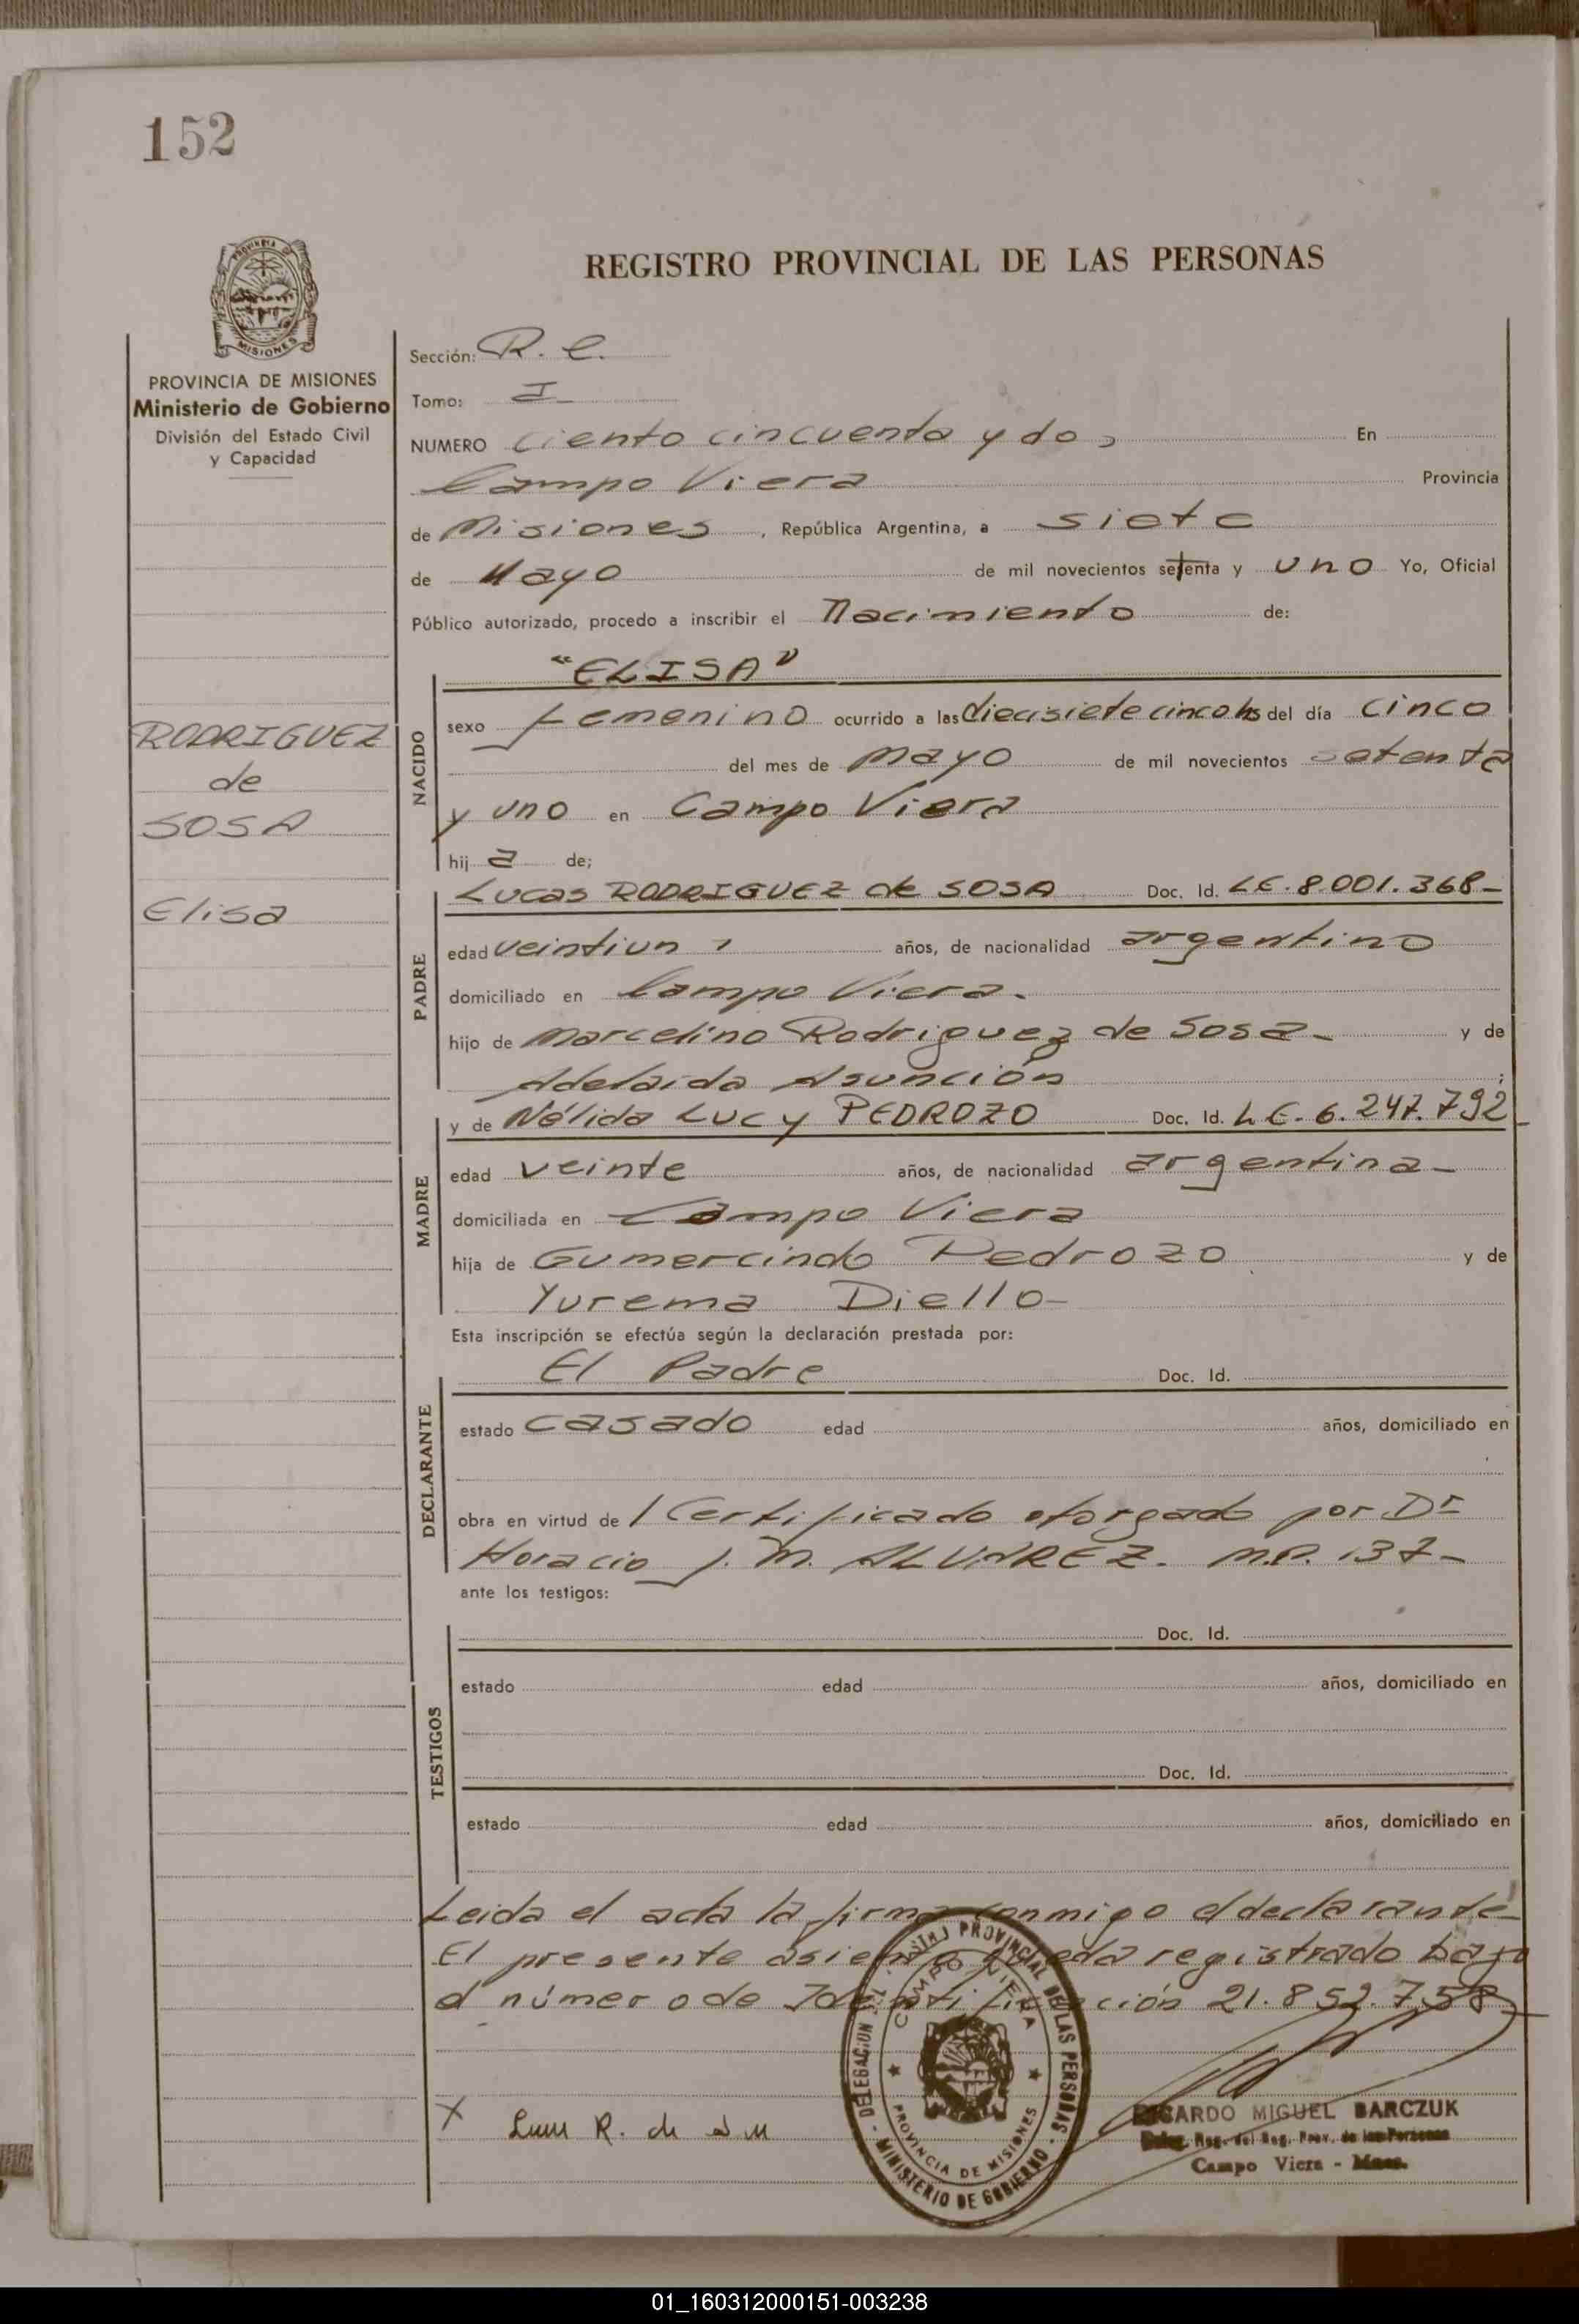 152
PROVINCIA DE MISIONES
Ministerio de Gobierno
División del Estado Civil
y Capacidad
RODRIGUEZ
de
SOSA
Elisa
REGISTRO PROVINCIAL DE LAS PERSONAS
Sección: R. C.
Tomo: I
NUMERO Ciento cincuenta y dos En
Campo Viera Provincia
de Misiones, República Argentina, a siete
de Mayo de mil novecientos setenta y uno Yo, Oficial
Público autorizado, procedo a inscribir el Nacimiento de:
"ELISA"
NACIDO
sexo femenino ocurrido a las diecisiete cinco hs del día cinco
del mes de mayo de mil novecientos setenta
y uno en Campo Viera
hij a de;
PADRE
Lucas RODRIGUEZ de SOSA Doc. Id. LE. 8.001.368-
edad veintiun años, de nacionalidad argentino
domiciliado en Campo Viera.
hijo de Marcelino Rodriguez de Sosa- y de
Adelaida Asunción ;
MADRE
y de Nélida Lucy PEDROZO Doc. Id. L.E. 6.247.792
edad veinte años, de nacionalidad argentina-
domiciliada en Campo Viera
hija de Gumercindo Pedrozo y de
Yurema Diello-
Esta inscripción se efectúa según la declaración prestada por:
DECLARANTE
El Padre Doc. Id.
estado casado edad años, domiciliado en
obra en virtud de 1 Certificado otorgado por Dr
Horacio J. M. ALVAREZ. M.P. 137-
ante los testigos:
TESTIGOS
Doc. Id.
estado edad años, domiciliado en
Doc. Id.
estado edad años, domiciliado en
Leida el acta la firma conmigo el declarante
El presente asiento queda registrado bajo
el número de Identificación 21.852.758
DELEGACION REGISTRO PROVINCIAL DE LAS PERSONAS - MINISTERIO DE GOBIERNO -
CAMPO VIERA
PROVINCIA DE MISIONES
X R. de
RICARDO MIGUEL BARCZUK
Deleg. Reg. del Reg. Prov. de las Personas
Campo Viera - Mnes.
01_160312000151-003238